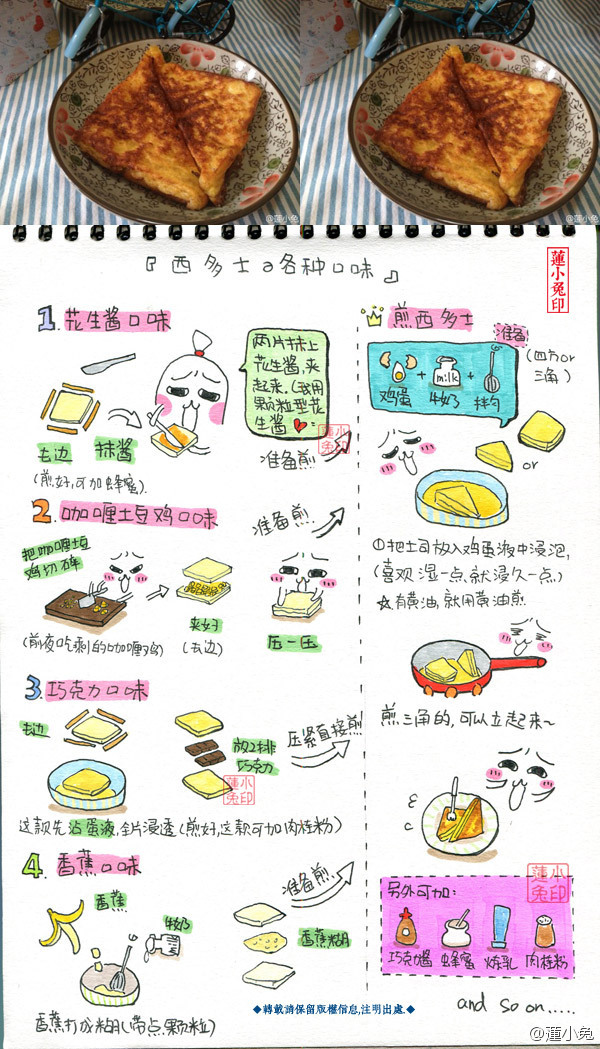 @蓮小兔
@蓮小兔
『西多士の各种口味』
蓮小兔印
1.花生酱口味
两片抹上
花生酱,夹
起来.(我用
颗粒型花
生酱
去边
抹酱
(煎好,可加蜂蜜).
准备煎
蓮小兔印
2.咖喱土豆鸡口味
准备煎
把咖喱土豆
鸡切碎
夹好
(去边)
压一压
(前夜吃剩的咖喱鸡)
3.巧克力口味
去边
放2排
巧克力
压紧直接煎
蓮小兔印
这款先沾蛋液,全片浸透(煎好,这款可加肉桂粉)
4.香蕉口味
香蕉
牛奶
准备煎
香蕉糊
香蕉打成糊(带点颗粒)
煎西多士
准备
(四方or
三角)
milk
鸡蛋 + 牛奶 + 拌匀
or
①把土司放入鸡蛋液中浸泡,
(喜欢湿一点,就浸久一点,)
☆有黄油,就用黄油煎
煎三角的,可以立起来~
蓮小兔印
另外可加:
巧克力酱 蜂蜜 炼乳 肉桂粉
and so on.....
◆轉載請保留版權信息,注明出處.◆
@蓮小兔